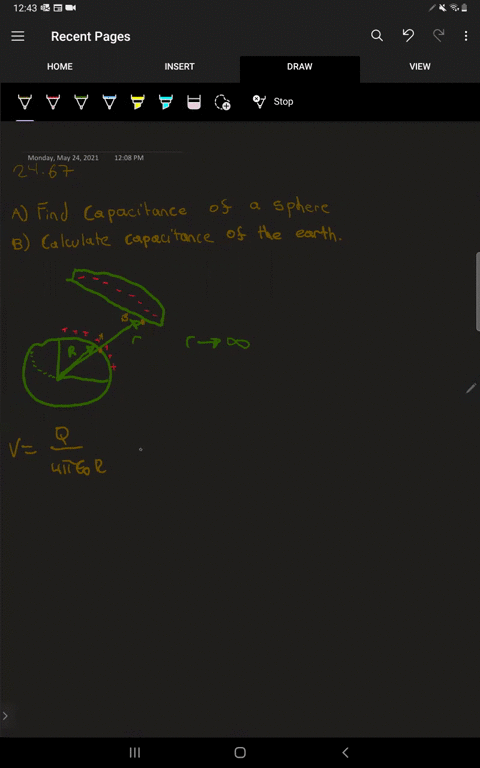 12:43
Recent Pages
HOME INSERT DRAW VIEW
Stop
Monday, May 24, 2021 12:08 PM
24.67
A) Find capacitance of a sphere
B) Calculate capacitance of the earth.
- - - - - - -
B
+ + + + + + +
R r
r → ∞
V = Q / 4πε0R